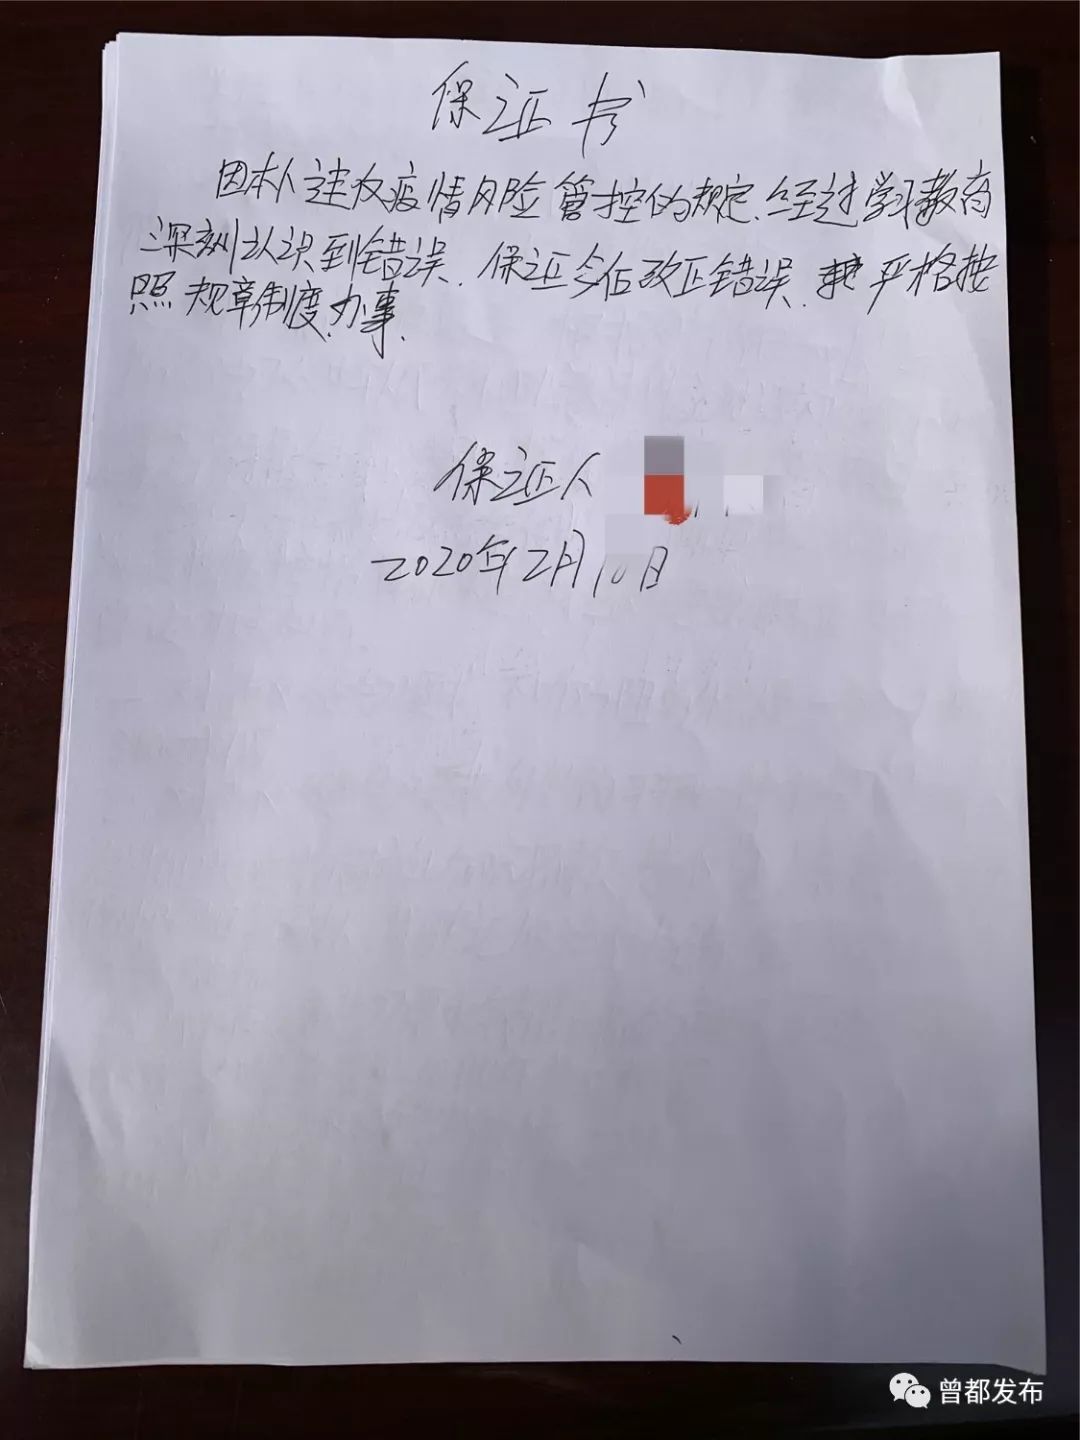 保证书
因本人违反疫情风险管控的规定.经过学习教育
深刻认识到错误.保证今后改正错误.严格按
照规章制度.办事.
保证人
2020年2月10日
曾都发布